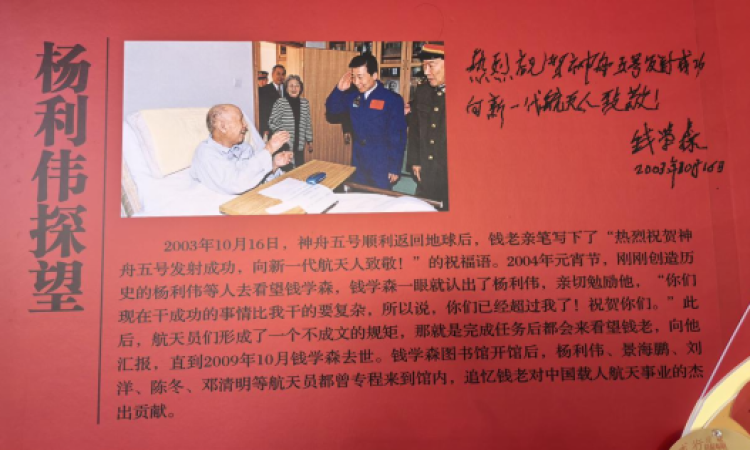 杨利伟探望
热烈祝贺神舟五号发射成功
向新一代航天人致敬！
钱学森
2003年10月16日
2003年10月16日，神舟五号顺利返回地球后，钱老亲笔写下了“热烈祝贺神
舟五号发射成功，向新一代航天人致敬！”的祝福语。2004年元宵节，刚刚创造历
史的杨利伟等人去看望钱学森，钱学森一眼就认出了杨利伟，亲切勉励他，“你们
现在干成功的事情比我干的要复杂，所以说，你们已经超过我了！祝贺你们。”此
后，航天员们形成了一个不成文的规矩，那就是完成任务后都会来看望钱老，向他
汇报，直到2009年10月钱学森去世。钱学森图书馆开馆后，杨利伟、景海鹏、刘
洋、陈冬、邓清明等航天员都曾专程来到馆内，追忆钱老对中国载人航天事业的杰
出贡献。